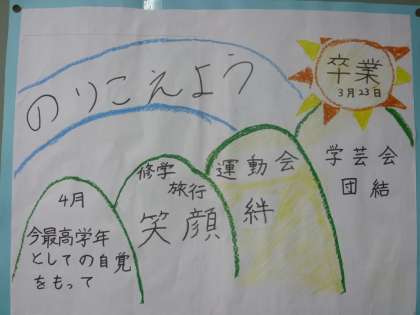 のりこえよう
卒業
3月23日
4月
今最高学年
としての自覚
をもって
修学
旅行
笑顔
運動会
絆
学芸会
団結